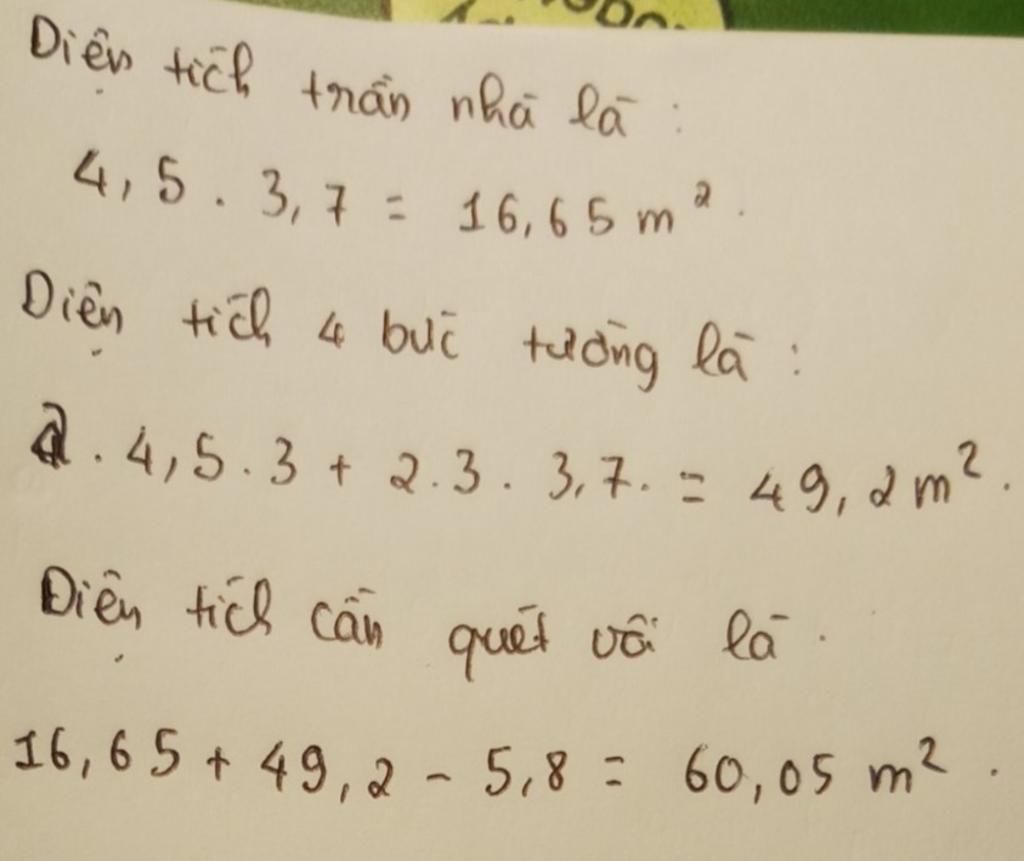 Diện tích trần nhà là :
4,5 . 3,7 = 16,65 m².
Diện tích 4 bức tường là :
2. 4,5.3 + 2.3. 3,7. = 49,2m².
Diện tích cần quét vôi là.
16,65 + 49,2 - 5,8 = 60,05 m².